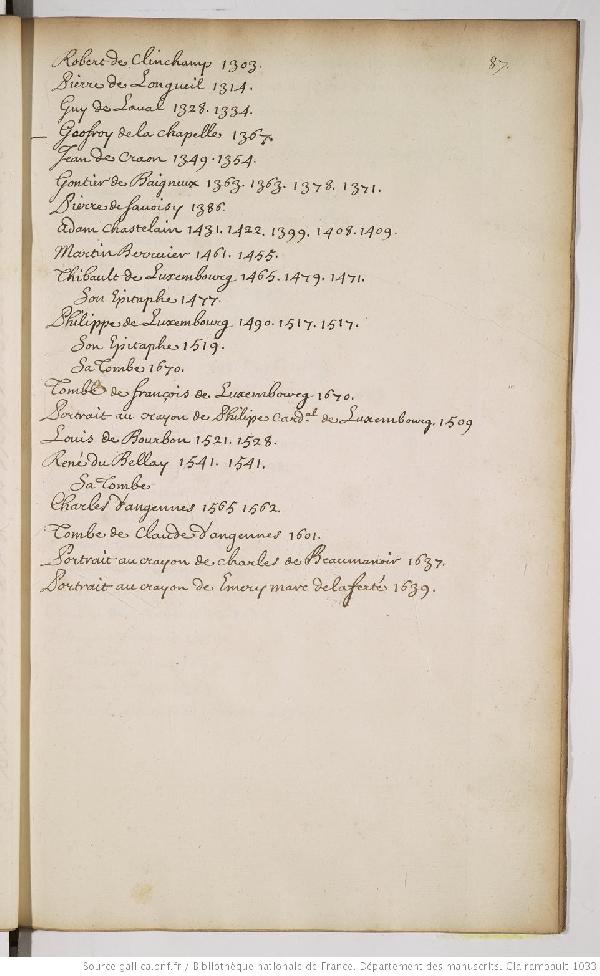 87.
Robert de Clinchamp 1303.
Pierre de Longueil 1314.
Guy de Laval 1328. 1334.
Geofroy de la Chapelle 1367.
Jean de Craon 1349. 1354.
Gontier de Baigneux 1363. 1363. 1378. 1371.
Pierre de Savoisy 1386.
Adam Chastelain 1431. 1422. 1399. 1408. 1409.
Martin Berruier 1461. 1455.
Thibault de Luxembourg 1465. 1479. 1471.
Son Epitaphe 1477.
Philippe de Luxembourg 1490. 1517. 1517.
Son Epitaphe 1519.
Sa Tombe 1670.
Tombe de françois de Luxembourg 1670.
Portrait au crayon de Philipe Card.al de Luxembourg. 1509
Louis de Bourbon 1521. 1528.
René du Bellay 1541. 1541.
Sa Tombe
Charles d'angennes 1565 1562.
Tombe de Claude d'angennes 1601.
Portrait au crayon de charles de Beaumanoir 1637.
Portrait au crayon de Emery marc de la ferté 1639.
Source gallica.bnf.fr / Bibliothèque nationale de France. Département des manuscrits. Clairambault 1033